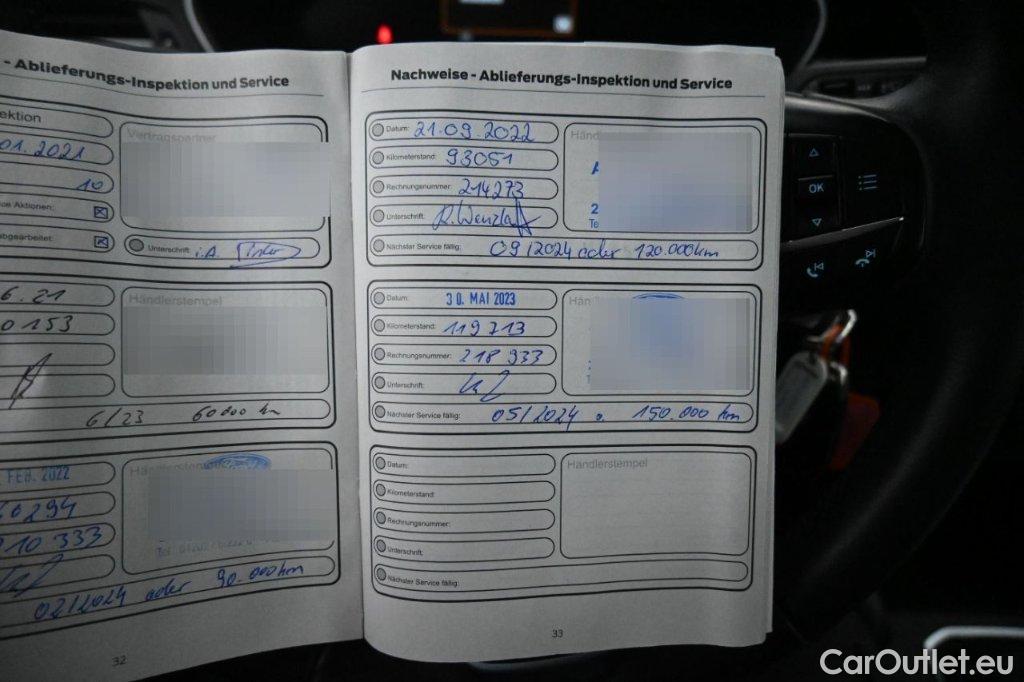 - Ablieferungs-Inspektion und Service
ektion
01.2021
10
ice Aktionen:
abgearbeitet:
Vertragspartner
Unterschrift: i.A.
6.21
0153
Händlerstempel
6/23 60000 km
FEB. 2022
60294
210 333
Händlerstempel
Tel
02/2024 oder 90.000km
32
Nachweise - Ablieferungs-Inspektion und Service
Datum: 21.09.2022
Kilometerstand: 93051
Rechnungsnummer: 214273
Unterschrift:
Nächster Service fällig: 09/2024 oder 120.000km
Händ
Te
Datum: 30. MAI 2023
Kilometerstand: 119713
Rechnungsnummer: 218 933
Unterschrift:
Nächster Service fällig: 05/2024 o. 150.000 km
Hän
Datum:
Kilometerstand:
Rechnungsnummer:
Unterschrift:
Nächster Service fällig:
Händlerstempel
33
OK
CarOutlet.eu